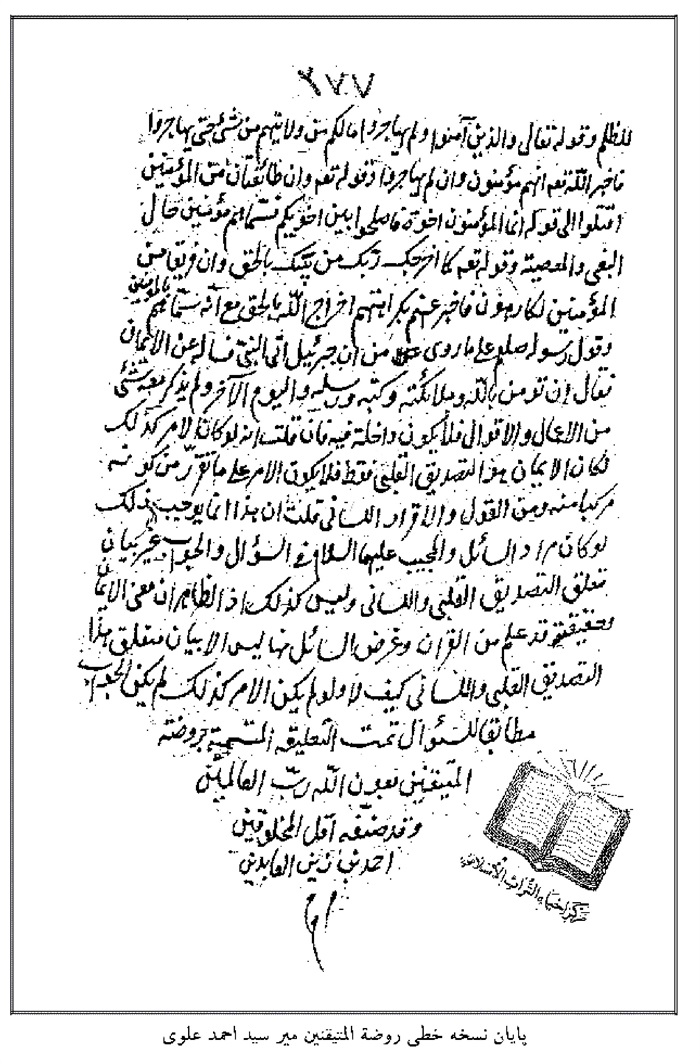 ٢٧٧
للظلم وقوله تعالى والذين آمنوا ولم يهاجروا مالكم من ولايتهم من شئ حتى يهاجروا
فاخبر الله تعه انهم مؤمنون وان لم يهاجروا وقوله تعه وان طائفتان من المؤمنين
اقتتلوا الى قوله انما المؤمنون اخوة فاصلحوا بين اخويكم فسماهم مؤمنين حال
البغى والمعصية وقوله تعه كما اخرجك ربك من بيتك بالحق وان فريقا من
المؤمنين لكارهون فاخبر عنهم بكراهتهم اخراج الله بالحق مع انه سماهم بالمؤمنين
وقول رسوله صلعم على ما روى من ان جبرئيل اتى النبى فساله عن الايمان
فقال ان تومن بالله وملائكته وكتبه ورسله واليوم الآخر ولم يذكر معه شئ
من الاعمال والاقوال فلا يكون داخلة فيه فان قلت انه لو كان الامر كذلك
لكان الايمان هو التصديق القلبى فقط فلا يكون الامر على ما تقرر من كونه
مركبا منه ومن القول والاقرار اللسانى قلت ان هذا انما يوجب ذلك
لو كان مراد السائل والمجيب عليهما السلام فى السؤال والجواب غير بيان
تعلق التصديق القلبى واللسانى وليس كذلك اذ الظاهر ان معنى الايمان
وحقيقته قد علم من القرآن وغرض السائل ليس الا بيان متعلق هذا
التصديق القلبى واللسانى كيف لا ولو لم يكن الامر كذلك لم يكن الجواب
مطابقا للسؤال تمت التعليقة المسمية بروضة
المتيقنين بعون الله رب العالمين
وقد صنفه اقل المخلوقين
احمد بن زين العابدين
مركز احياء التراث الاسلامى
پايان نسخه خطى روضة المتيقنين مير سيد احمد علوى